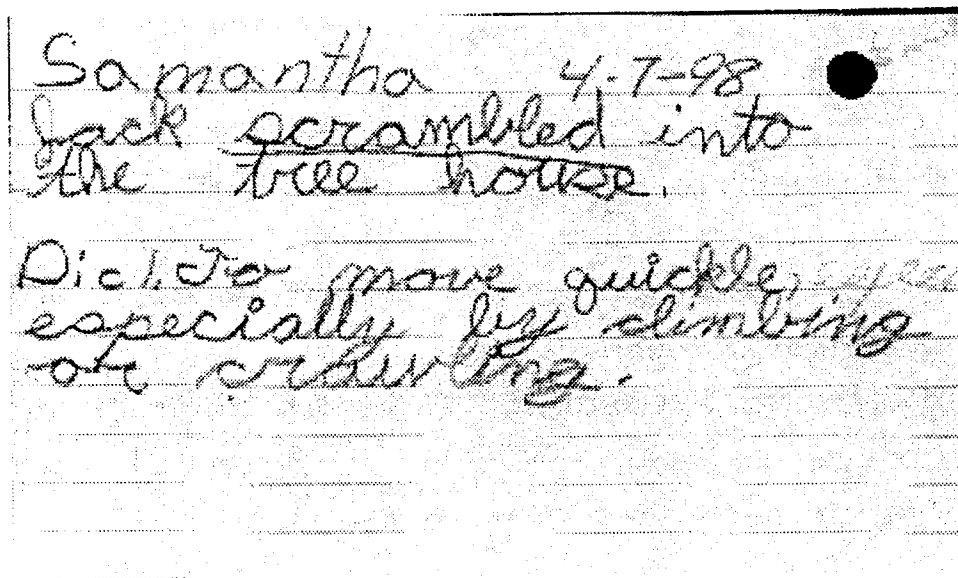 Samantha 4-7-98
Jack scrambled into
the tree house.
Dic1. To move quickle,
especially by climbing
or crawling.